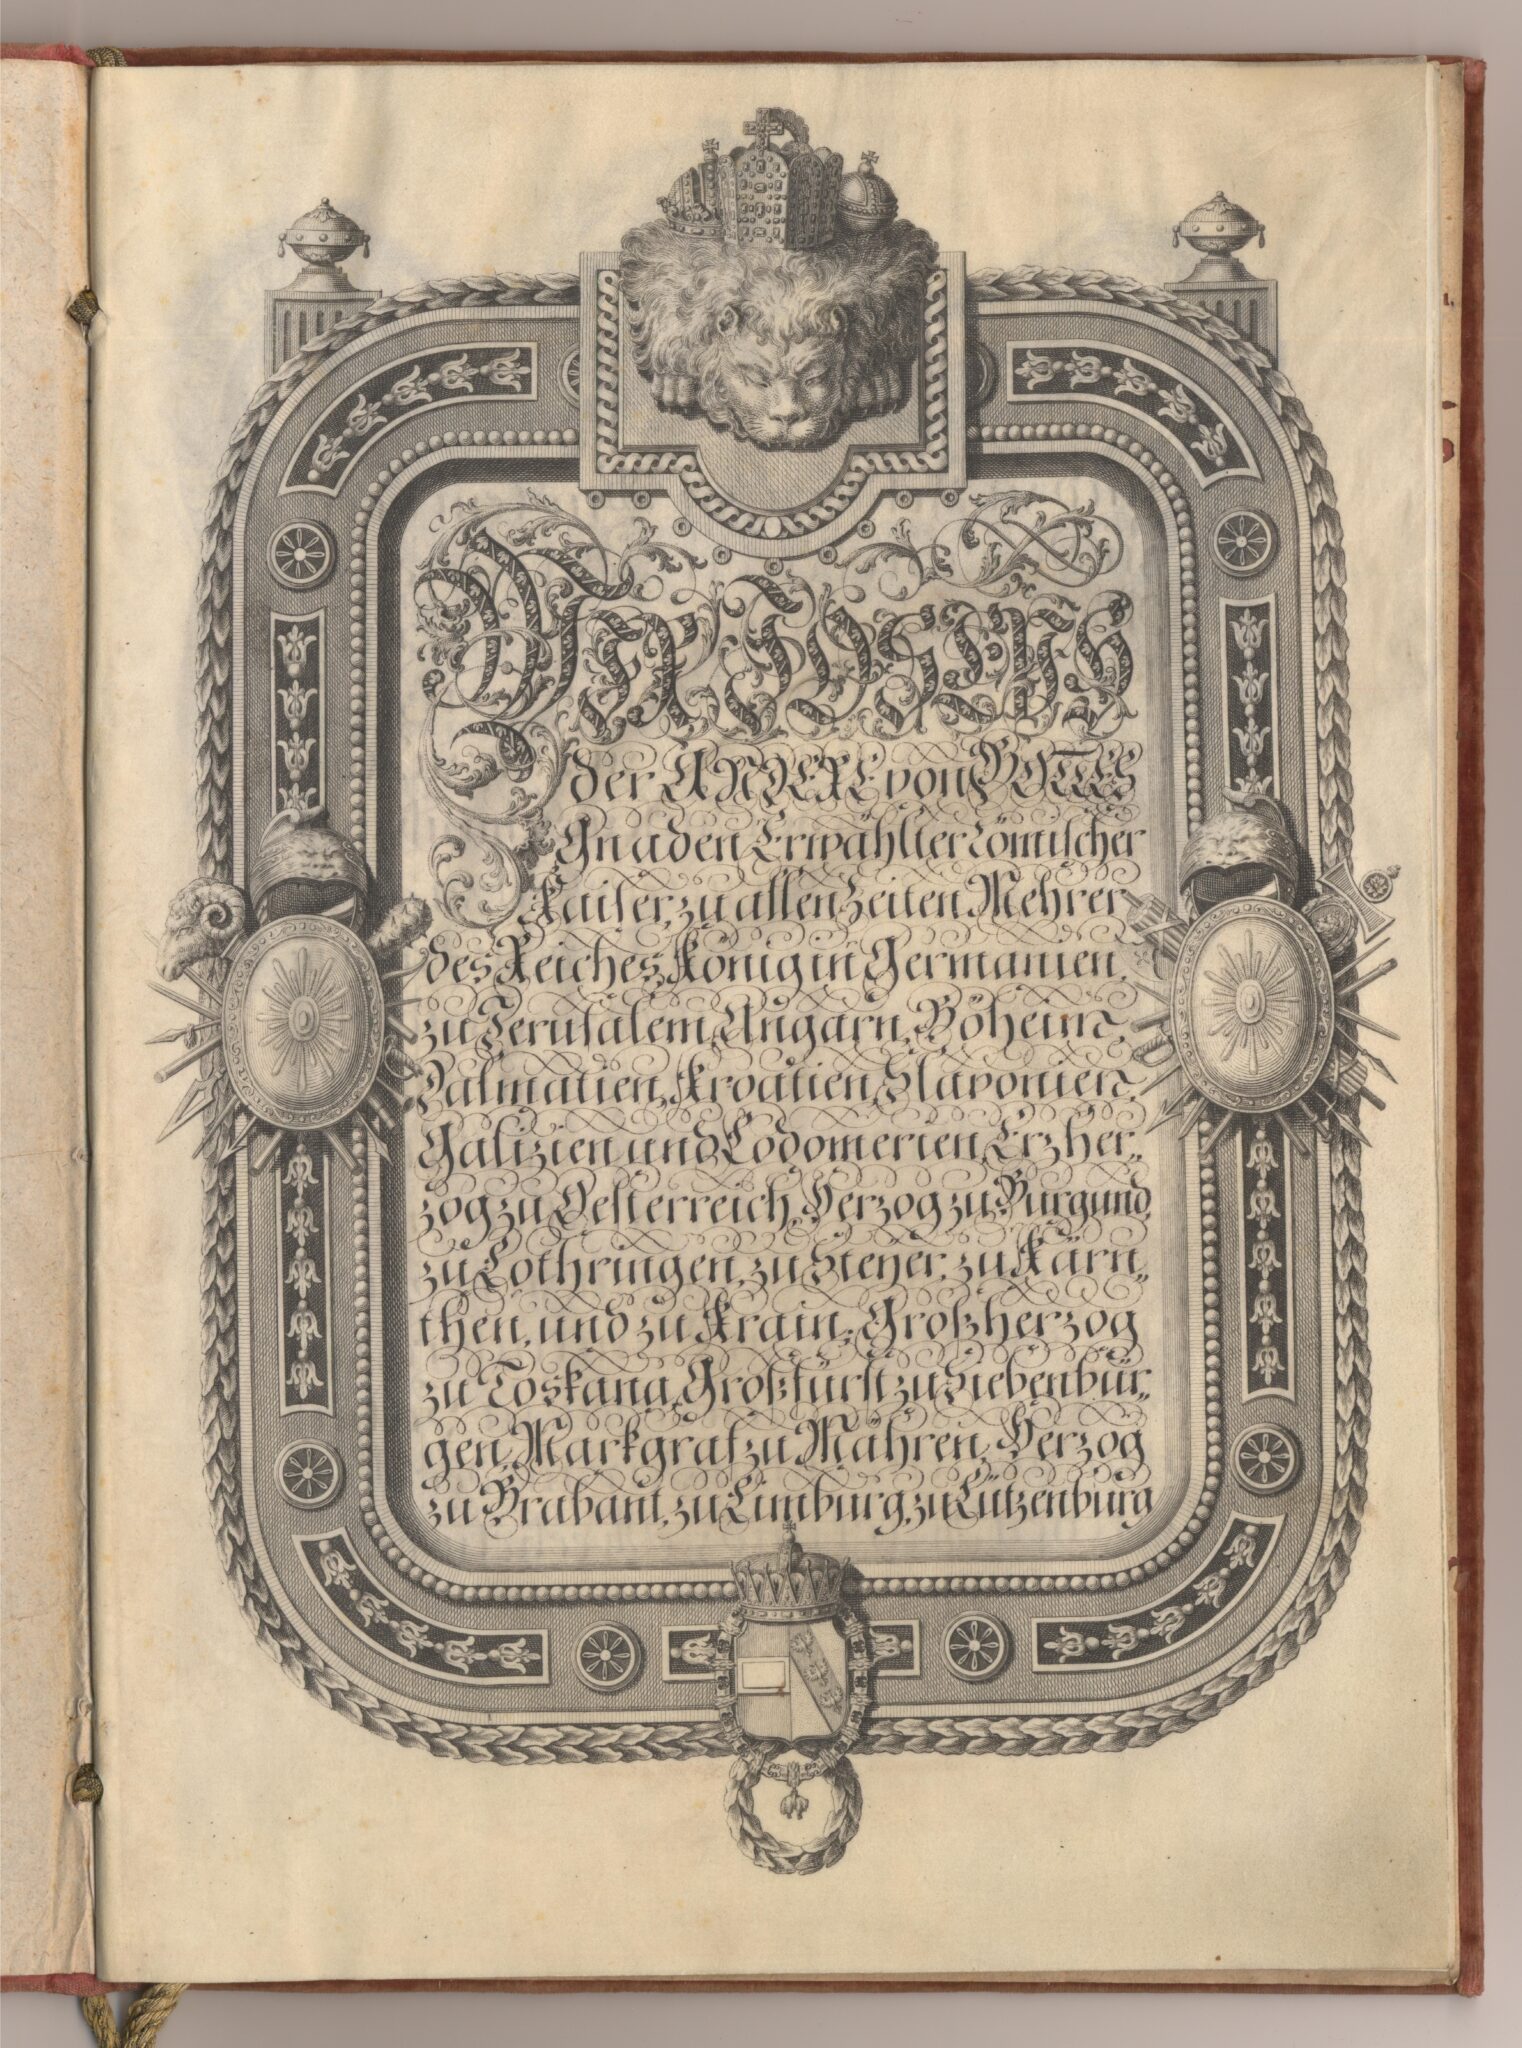 WIR JOSEPH
der ANDERE von GOTTES
Gnaden Erwählter römischer
Kaiser, zu allen Zeiten Mehrer
des Reiches, König in Germanien,
zu Jerusalem, Ungarn, Böheim,
Dalmatien, Kroatien, Slavonien,
Galizien und Lodomerien, Erzher„
zog zu Oesterreich, Herzog zu Burgund,
zu Lothringen, zu Steyer, zu Kärn„
then, und zu Krain, Großherzog
zu Toskana, Großfürst zu Siebenbür„
gen, Markgraf zu Mähren, Herzog
zu Brabant, zu Limburg, zu Lützenburg